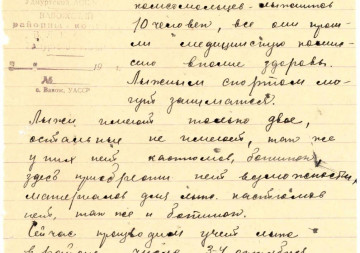 комсомольцев-лыжников
10 человек, все они прош-
ли медицинскую комис-
сию вполне здоровы.
Лыжным спортом мо-
гут заниматься.
Лыжи имеют только двое,
остальные не имеют, так же
у них нет костюмов, ботинок
здесь приобрести нет возможности,
материалов для лыж. костюмов
нет, так же и ботинок.
Сейчас производим учет лыж
в районе, числа 3-4 октября
районный ко
19
№
УАССР